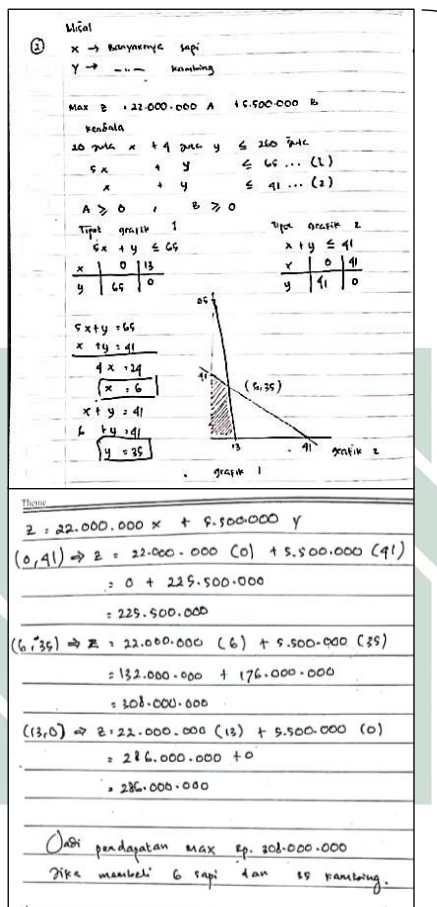 Misal
② X → Banyaknya sapi
Y → ..— kambing
Max Z = 22.000.000 A + 5.500.000 B
Kendala
20 juta x + 4 juta y ≤ 260 juta
5x + y ≤ 65 ... (1)
x + y ≤ 41 ... (2)
A ≥ 0 , B ≥ 0
Tipot grafik 1
5x + y ≤ 65
x | 0 | 13
y | 65 | 0
Tipot grafik 2
x + y ≤ 41
x | 0 | 41
y | 41 | 0
5x+y = 65
x +y = 41
4x = 24
x = 6
x + y = 41
6 +y = 41
y = 35
65
41
(6,35)
13
41
grafik 2
grafik 1
Theme
Z = 22.000.000 x + 5.500.000 y
(0,41) ⇒ Z = 22.000.000 (0) + 5.500.000 (41)
= 0 + 225.500.000
= 225.500.000
(6,35) ⇒ Z = 22.000.000 (6) + 5.500.000 (35)
= 132.000.000 + 176.000.000
= 308.000.000
(13,0) ⇒ Z = 22.000.000 (13) + 5.500.000 (0)
= 286.000.000 + 0
= 286.000.000
Jadi pendapatan max Rp. 308.000.000
Jika membeli 6 sapi dan 35 kambing.